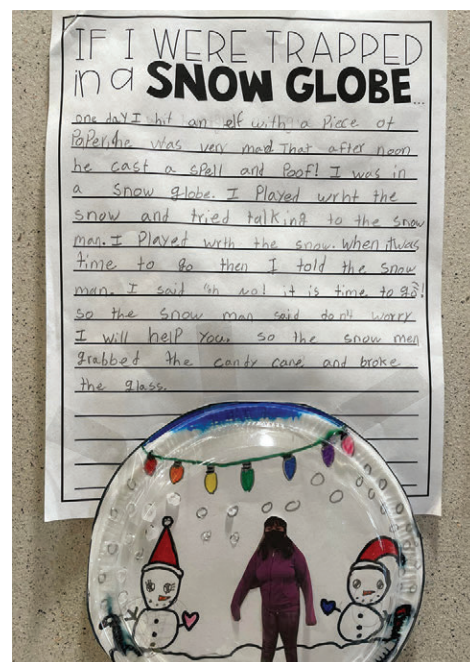 IF I WERE TRAPPED
in a SNOW GLOBE...
one day I hit an elf with a piece of
PaPer, he was very mad That after noon
he cast a sPell and Poof! I was in
a snow globe. I Played wiht the
snow and tried talking to the snow
man. I Played with the snow. when it was
time to go then I told the snow
man. I said "oh no! it is time to go"!
so the snow man said don't worry
I will help you. so the snow men
grabbed the candy cane and broke
the glass.